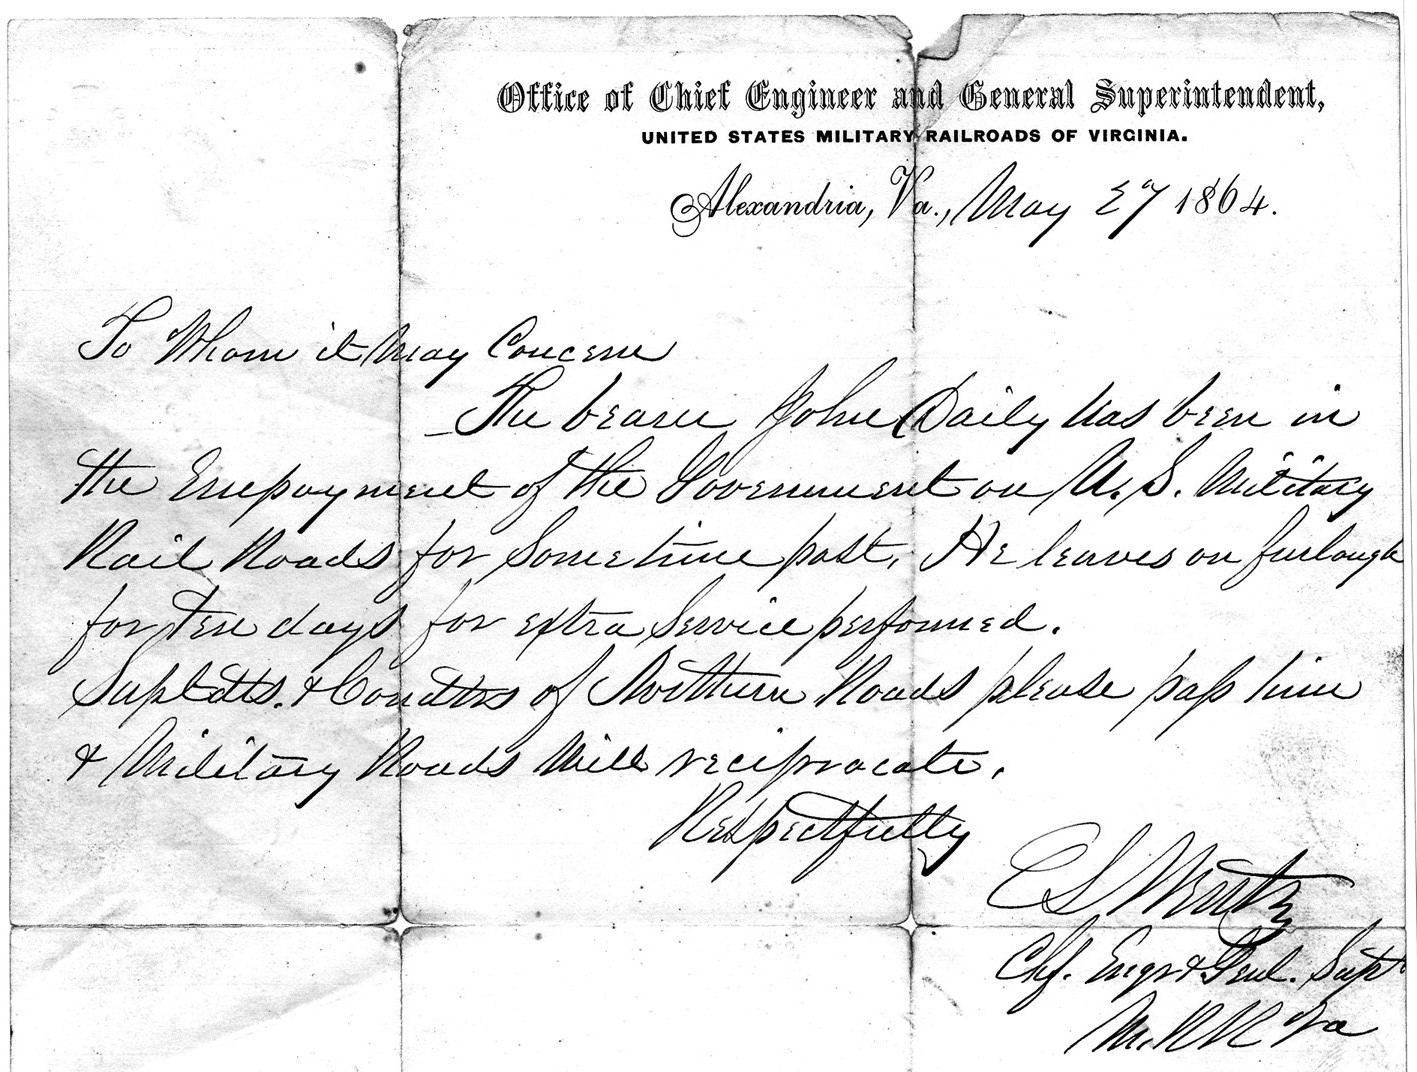 Office of Chief Engineer and General Superintendent,
UNITED STATES MILITARY RAILROADS OF VIRGINIA.
Alexandria, Va., May 27 1864.
To Whom it May Concern
The bearer John Daily has been in
the Empoyment of the Government on U. S. Military
Rail Roads for Sometime past. He leaves on furlough
for ten days for extra Service performed.
Suptdts. & Condtrs of Northern Roads please pass him
& Military Roads Will reciprocate.
Respectfully
C L Wentz
Chf. Engr & Genl. Supt
M. R R Va